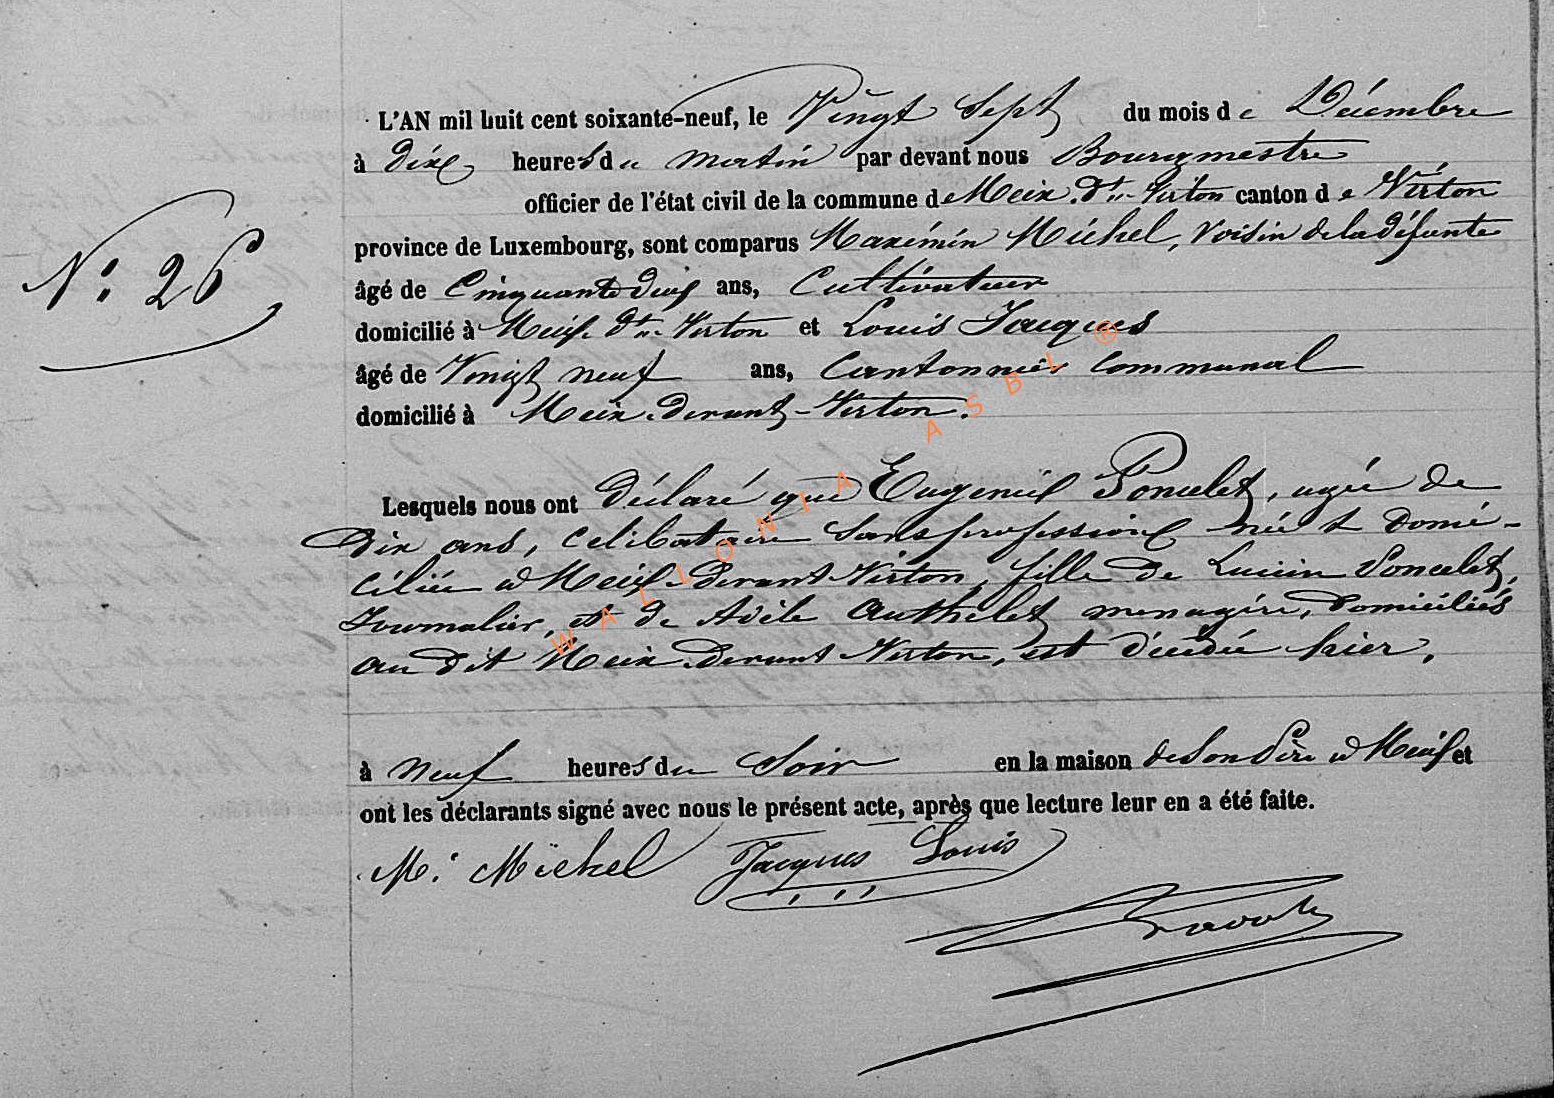 L'AN mil huit cent soixante-neuf, le Vingt Sept du mois de Décembre
à dix heures du matin par devant nous Bourgmestre
officier de l'état civil de la commune de Meix-dt-Virton canton de Virton
N° 26
province de Luxembourg, sont comparus Maximin Michel, Voisin de la défunte
âgé de Cinquante dix ans, Cultivateur
domicilié à Meix-dt-Virton et Louis Jacques
âgé de Vingt neuf ans, Cantonnier Communal
domicilié à Meix-devant-Virton.
Lesquels nous ont déclaré que Eugenie Poncelet, agée de
dix ans, celibataire Sans profession née & domi-
ciliée à Meix-devant-Virton, fille de Lucien Poncelet,
Journalier, et de Adèle Authelet menagère, domiciliés
au dit Meix-devant-Virton, est décédée hier.
à neuf heures du Soir en la maison de Son Père à Meix et
ont les déclarants signé avec nous le présent acte, après que lecture leur en a été faite.
M. Michel Jacques Louis
WALLONIA ASBL ®